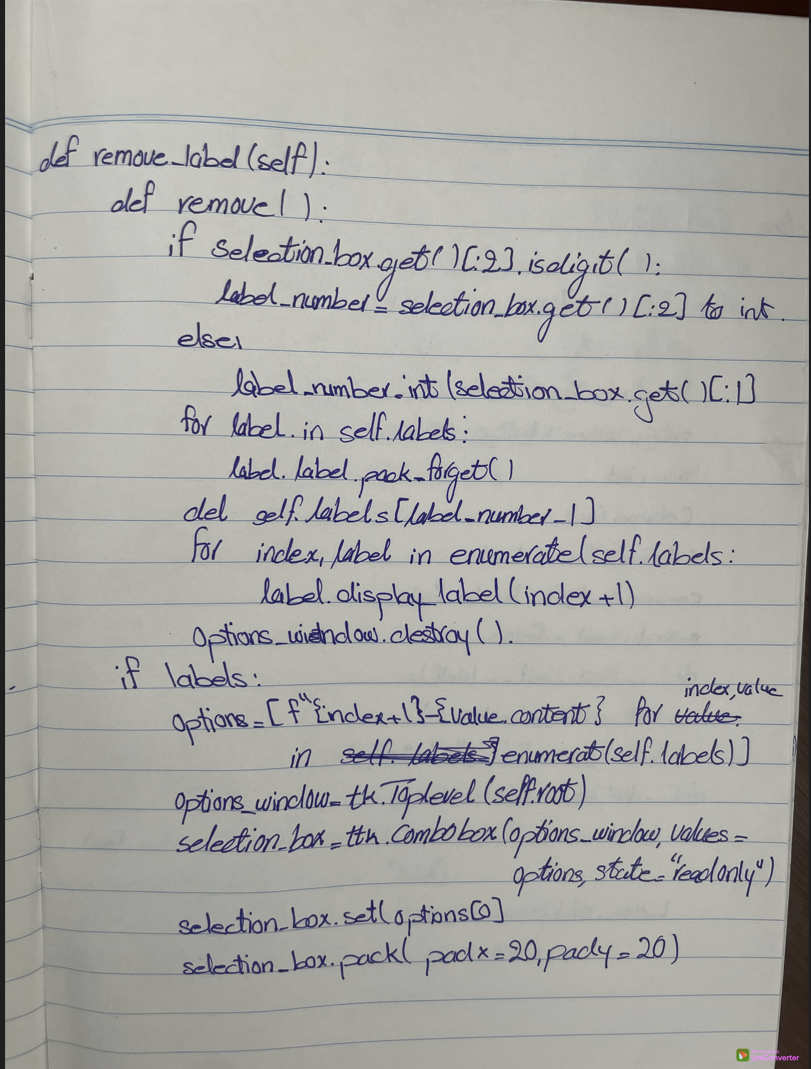 def remove_label(self):
def remove( ):
if selection_box.get( )[:2].isdigit( ):
label_number = selection_box.get( )[:2] to int.
else:
label_number_int(selection_box.get( )[:1]
for label in self.labels:
label.label.pack_forget( )
del self.labels[label_number-1]
for index, label in enumerate(self.labels:
label.display_label(index+1)
options_window.destroy( ).
if labels:
index, value
options=[f"{index+1}-{value.content}" for value.
in self.labels] enumerat(self.labels)]
options_window=tk.Toplevel(self.root)
selection_box=ttk.Combobox(options_window, values=
options, state="readonly")
selection_box.set(options[0]
selection_box.pack( padx=20, pady=20)